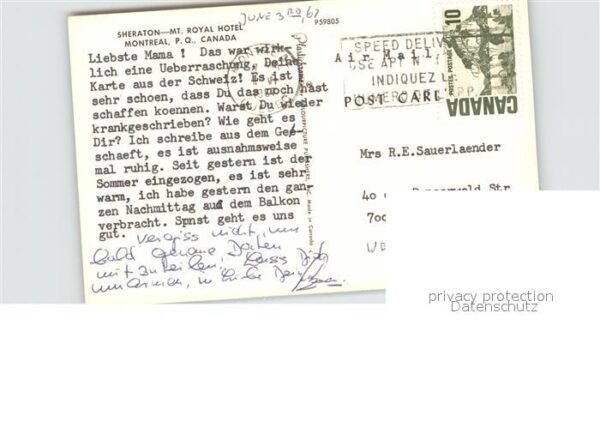 JUNE 3RD, 67
SHERATON—MT. ROYAL HOTEL
MONTREAL, P.Q., CANADA
P59805
Liebste Mama ! Das war wirk-
lich eine Ueberraschung, Deine
Karte aus der Schweiz! Es ist
sehr schoen, dass Du das noch hast
schaffen koennen. Warst Du wieder
krankgeschrieben? Wie geht es
Dir? Ich schreibe aus dem Ge-
schaeft, es ist ausnahmsweise
mal ruhig. Seit gestern ist der
Sommer eingezogen, es ist sehr
warm, ich habe gestern den gan-
zen Nachmittag auf dem Balkon
verbracht. Spnst geht es uns
gut. Vergiss nicht, uns
bald genaue Daten
mitzuteilen!
Made in Canada
SPEED DELIV
USE APT N
INDIQUEZ L
Air Mail
POST CARD
10
POSTES POSTAGE
CANADA
Mrs R.E.Sauerlaender
40
Str
700
privacy protection
Datenschutz